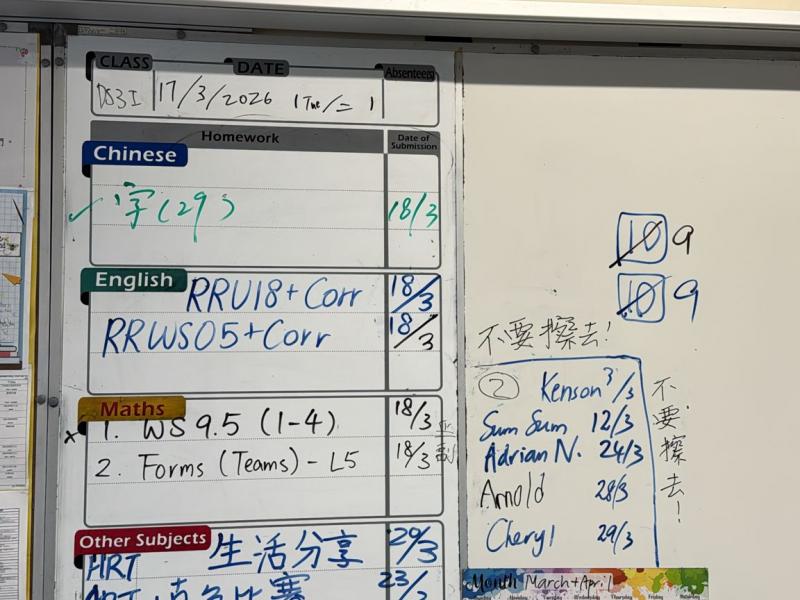 CLASS DATE Absentee(s)
DS3I 17/3/2026 (Tue) = 1
Homework Date of Submission
Chinese
✓ 字(29) 18/3
English
RRU18+Corr 18/3
RRWS05+Corr 18/3
Maths
x 1. WS 9.5 (1-4) 18/3
2. Forms (Teams) - L5 18/3
Other Subjects
ART 生活分享 29/3
比賽 23/3
10 9
10 9
不要擦去!
② Kenson 3/3
Sum Sum 12/3
Adrian N. 24/3
Arnold 28/3
Cheryl 29/3
不要擦去!
Month March+April